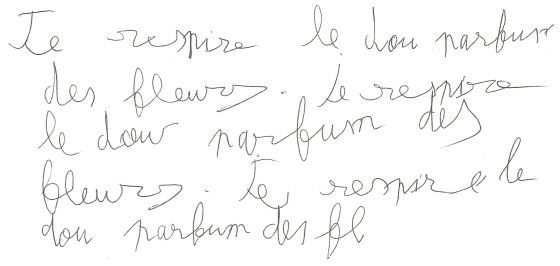 Je respire le dou parfum
des fleurs. Je respire
le doux parfum des
fleurs. Je respire le
dou parfum des fl